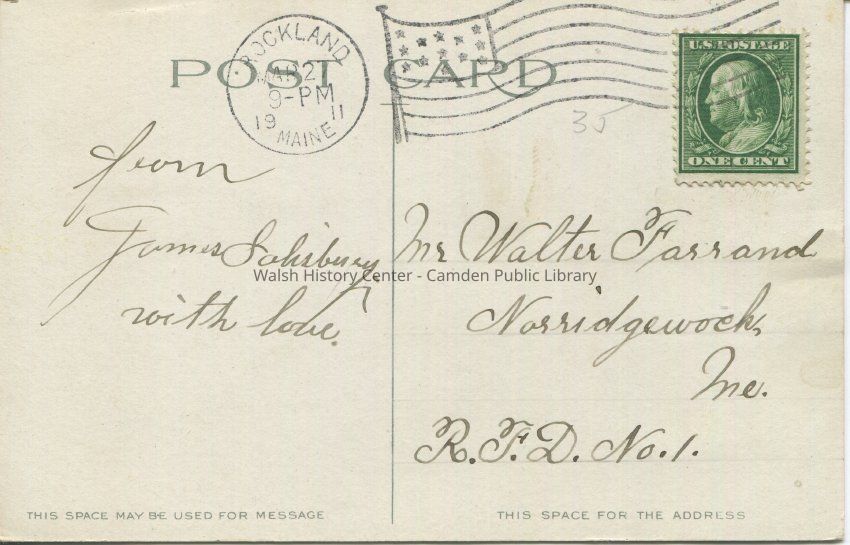 POST CARD
ROCKLAND
9-PM
19 11
MAINE
U.S. POSTAGE
ONE CENT
35
from
James Salisbury
with love.
Mr Walter Farrand
Norridgewock,
Me.
R.F.D. No. 1.
Walsh History Center - Camden Public Library
THIS SPACE MAY BE USED FOR MESSAGE
THIS SPACE FOR THE ADDRESS